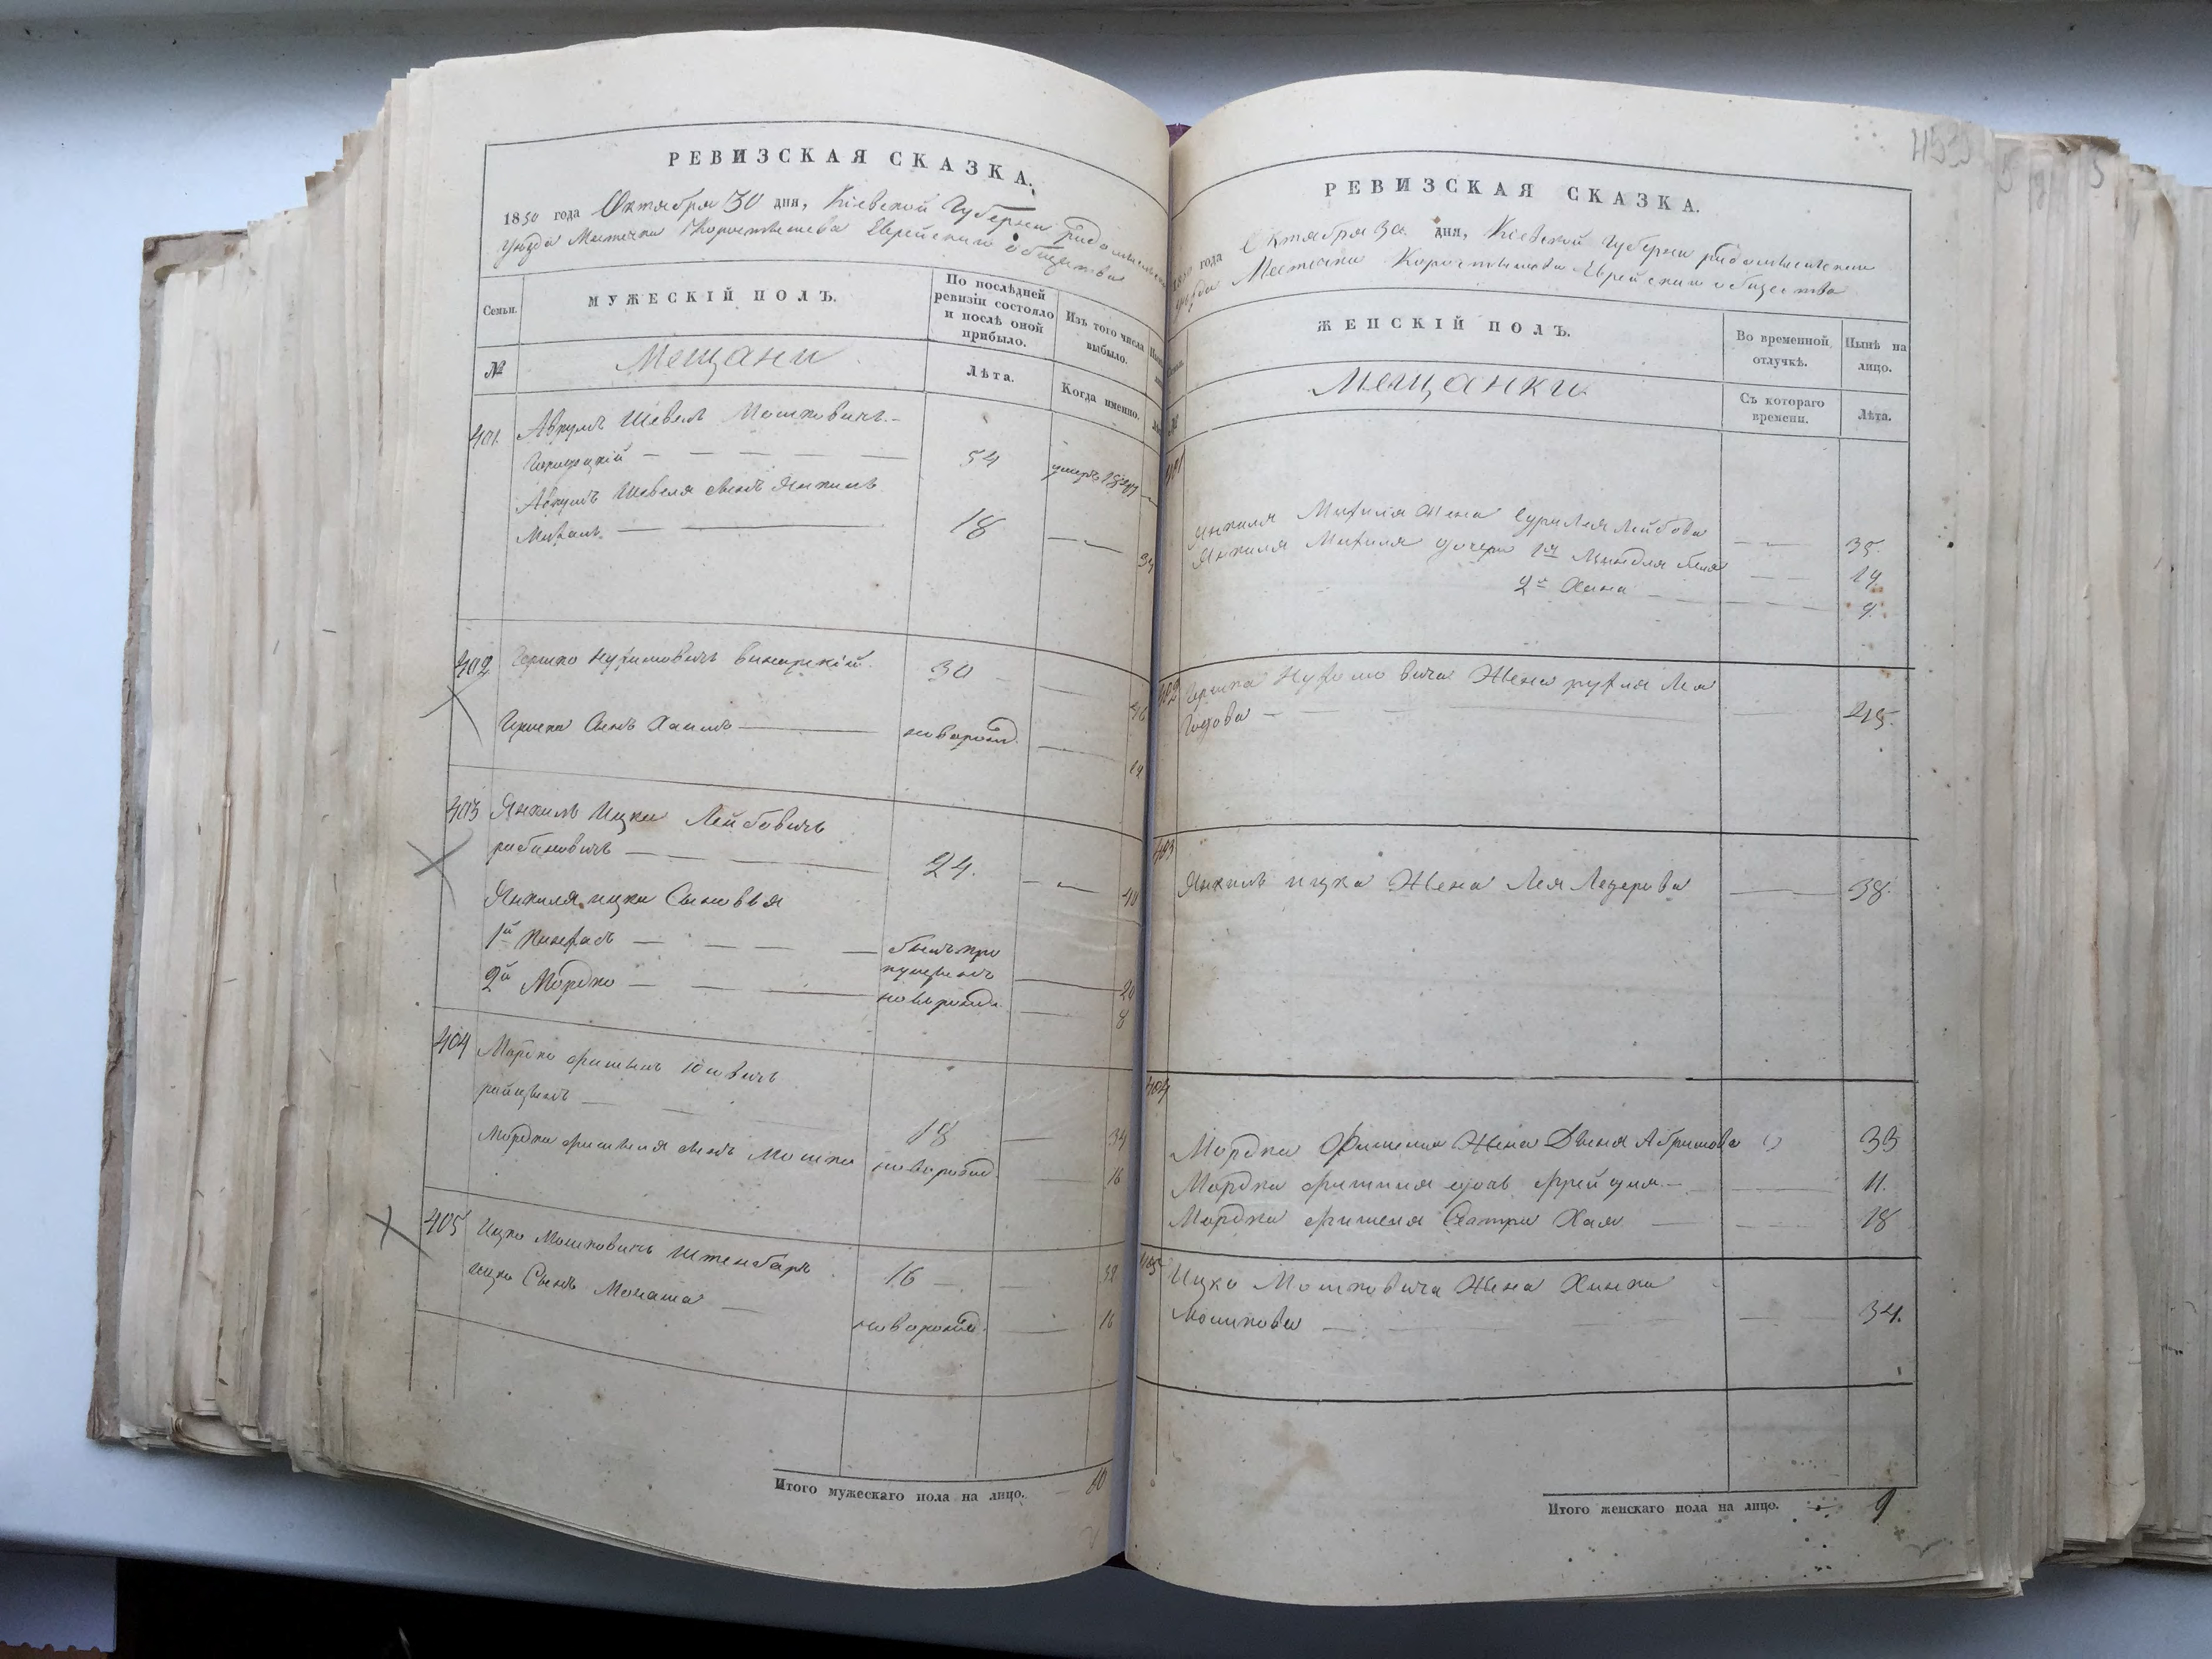 РЕВИЗСКАЯ СКАЗКА.
1850 года Октября 30 дня, Кіевской Губерни Радомысльскаго
уезда Местечка Коростышева Еврейскаго общества
Семьи.
МУЖЕСКІЙ ПОЛЪ.
По послѣдней ревизіи состояло и послѣ оной прибыло.
Изъ того числа выбыло.
№
Мещани
Лѣта.
Когда именно.
401.
Аврумъ Шевель Мошковичъ
54
умеръ
Аврумъ Шевеля сынъ Янкель
Михаль
18
402
Гершко Нухимовичъ
30
Гершка Сынъ Хаимъ
новорожд.
14
403
Янкель Ицко Лейбовичъ
рабиновичъ
24.
40
Янкеля ицки Сыновья
1й Пинхасъ
былъ про
пущенъ
20
2й Мордко
новорожд.
8
404
Мордко фишель
18
34
Мордка фишеля сынъ Мошко
новорожд.
16
405
Ицко Мошковичъ Штенбаръ
16
32
Ицка Сынъ Монаша
новорожд.
16
Итого мужескаго пола на лицо.
10
РЕВИЗСКАЯ СКАЗКА.
1850 года Октября 30 дня, Кіевской Губерни Радомысльскаго
уезда Местечка Коростышева Еврейскаго общества
ЖЕНСКІЙ ПОЛЪ.
Во временной отлучкѣ.
Нынѣ на лицо.
№
Мещанки
Съ котораго времени.
Лѣта.
401
Янкеля Михеля Жена Сура Лея Лейбова
35.
Янкеля Михеля дочери 1я Миндля Бейля
14
2я Хана
9.
402
Гершка Нухимовича Жена рухля Лея
45.
403
Янкель ицка Жена Лея Лезерова
38.
404
Мордка Фишеля Жена Двейя Абрамова
33
Мордка фишеля дочь Фрейдля
11.
Мордка фишеля Сестра Хая
18
405
Ицка Мошковича Жена Хинка
Мошкова
34.
Итого женскаго пола на лицо.
9